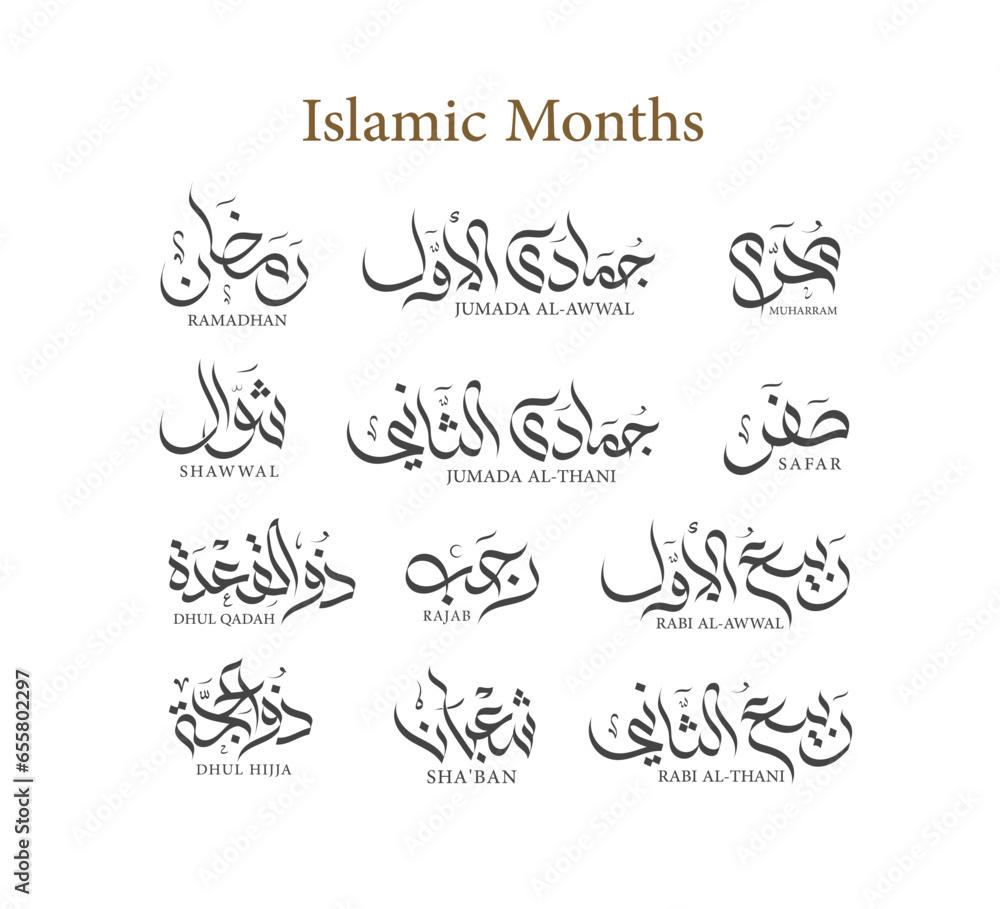 Islamic Months
محرم
MUHARRAM
صفر
SAFAR
ربيع الأول
RABI AL-AWWAL
ربيع الثاني
RABI AL-THANI
جمادى الأول
JUMADA AL-AWWAL
جمادى الثاني
JUMADA AL-THANI
رجب
RAJAB
شعبان
SHA'BAN
رمضان
RAMADHAN
شوال
SHAWWAL
ذو القعدة
DHUL QADAH
ذو الحجة
DHUL HIJJA
Adobe Stock | #655802297